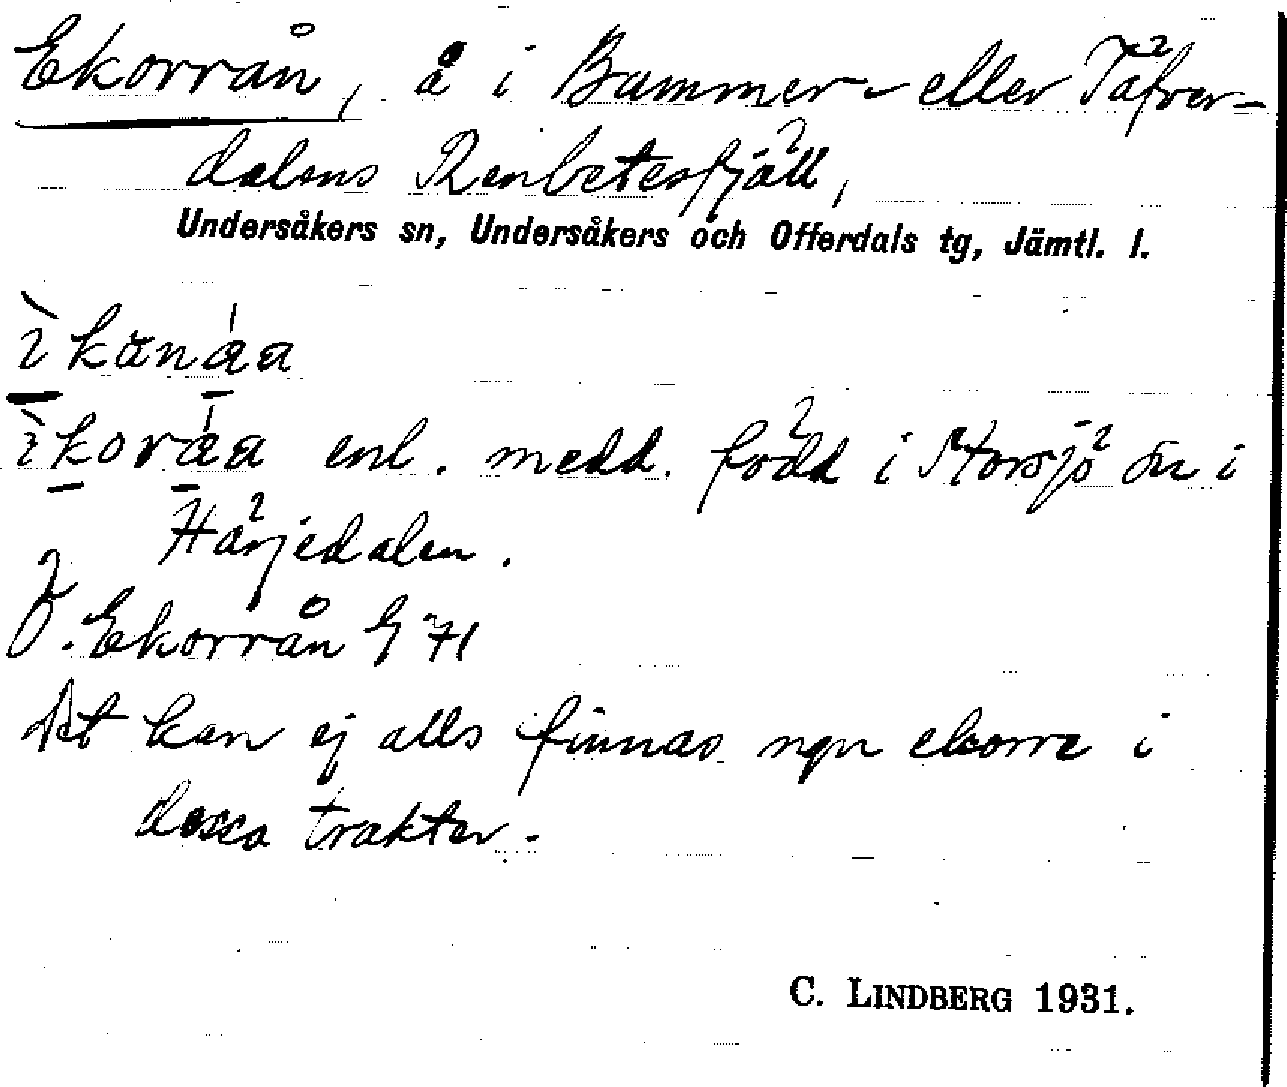 Ekorrån, å i Bummer- eller Täfver-
dalens Renbetesfjäll,
Undersåkers sn, Undersåkers och Offerdals tg, Jämtl. l.
enl. medd. född i Storsjö sn i
Härjedalen.
Ekorrån G 71
Det kan ej alls finnas ngn ekorre i
dessa trakter.
C. LINDBERG 1931.